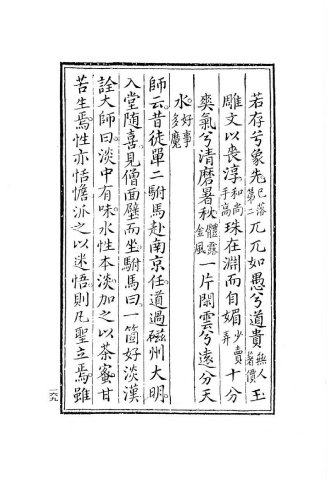 若存兮象先已落第二兀兀如愚兮道貴無人著價玉
雕文以喪淳和尚手高珠在淵而自媚少賣弄十分
爽氣兮清磨暑秋體露金風一片閑雲兮遠分天
水好事多魔
師云昔徒單二駙馬赴南京任道過磁州大明
入堂随喜見僧面壁而坐駙馬曰一箇好淡漢
詮大師曰淡中有味水性本淡加之以茶蜜甘
苦生焉性亦恬憺泒之以迷悟則凡聖立焉雖
一六九